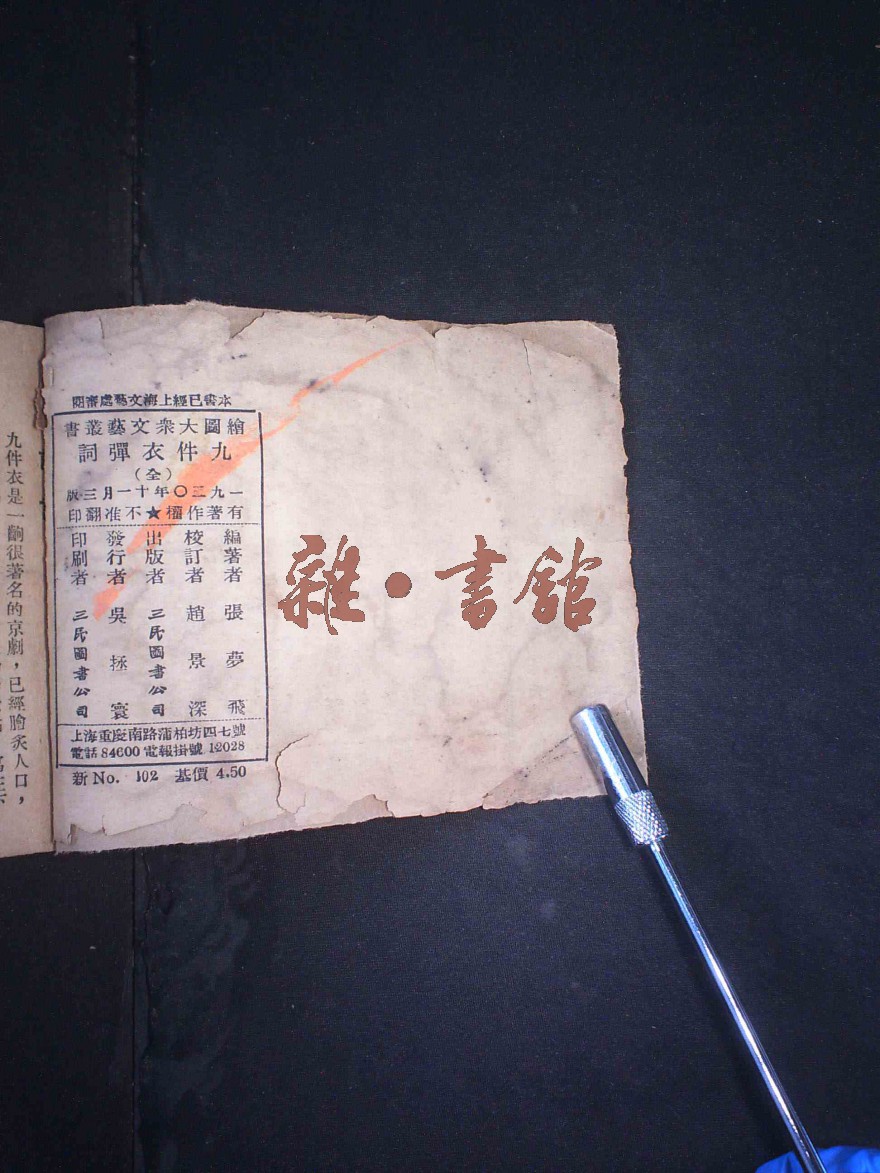 本書已經上海文藝處審閱
繪圖大衆文藝叢書
九件衣彈詞
(全)
一九三〇年十一月三版
有著作權★不准翻印
編著者 張夢飛
校訂者 趙景深
出版者 三民圖書公司
發行者 吳拯寰
印刷者 三民圖書公司
上海重慶南路蒲柏坊四七號
電話 84600 電報掛號 12028
新No. 102 基價 4.50
雜•書館
九件衣是一齣很著名的京劇，已經膾炙人口，